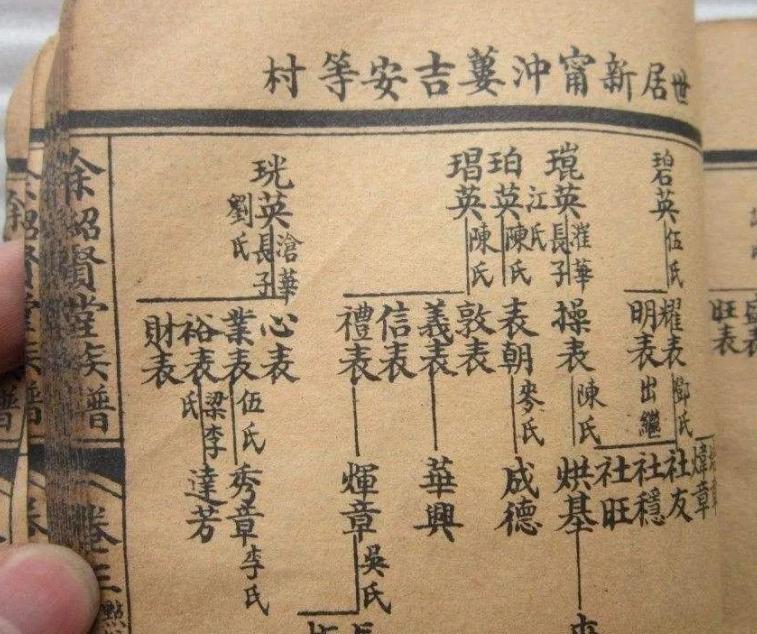 世居新甯沖蔞吉安等村
碧英
伍氏
琨英
漼華
長子
江氏
珀英
陳氏
琩英
陳氏
珖英
滄華
長子
劉氏
耀表
鄧氏
明表
出繼
操表
陳氏
表朝
麥氏
敦表
義表
信表
禮表
心表
業表
伍氏
裕表
梁李
氏
財表
旺表
煒章
社友
社穩
社旺
烘基
成德
華興
煇章
吳氏
秀章
李氏
達芳
余紹賢堂族譜
卷三